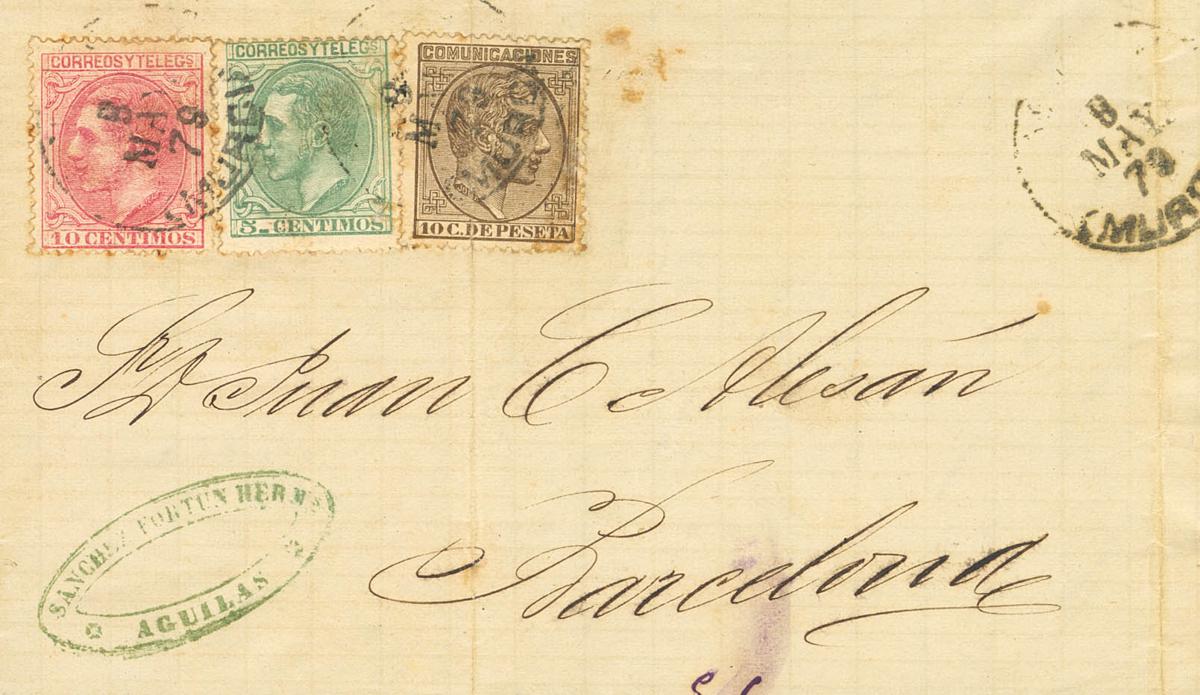 CORREOS Y TELEGS
10 CENTIMOS
CORREOS Y TELEGS
5 CENTIMOS
COMUNICACIONES
10 C. DE PESETA
8
MAY
79
(MURCI
8
M
79
MURC
8
MAY
79
(MUR
Sr D Juan C Alesán
Barcelona
SANCHEZ FORTUN HERMS
AGUILAS